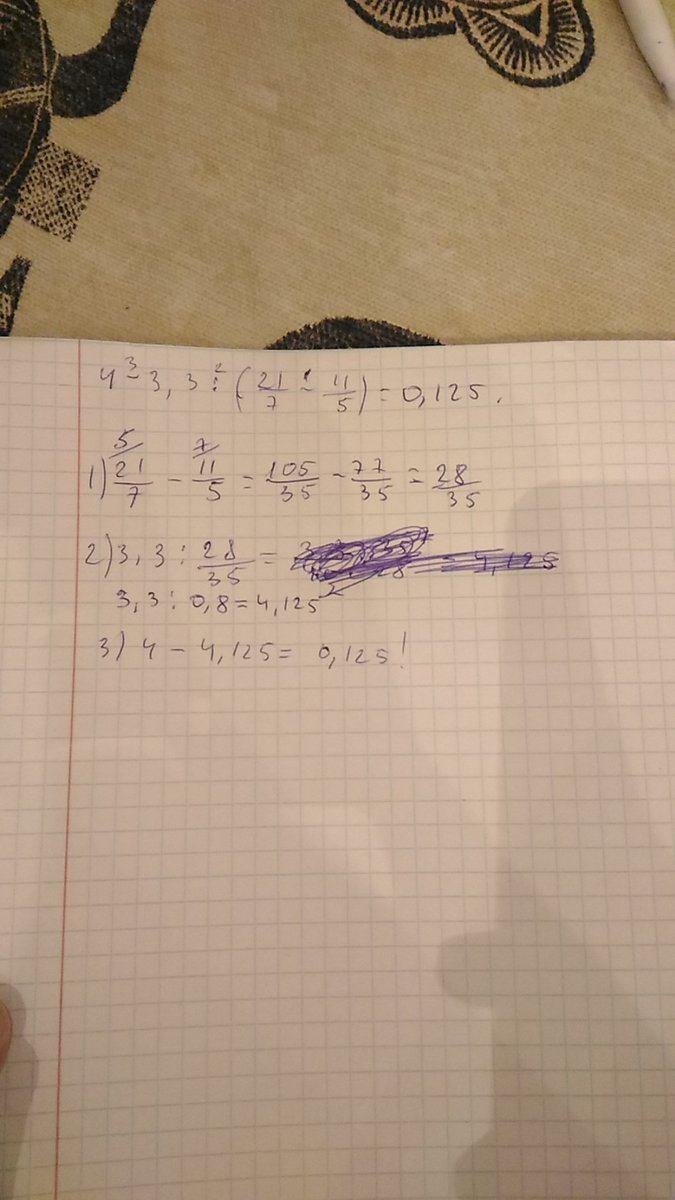 4 - 3,3 : (21/7 - 11/5) = 0,125.
3 2 1
5/ 7/
1) 21/7 - 11/5 = 105/35 - 77/35 = 28/35
2) 3,3 : 28/35 = 
3,3 : 0,8 = 4,125
3) 4 - 4,125 = 0,125!